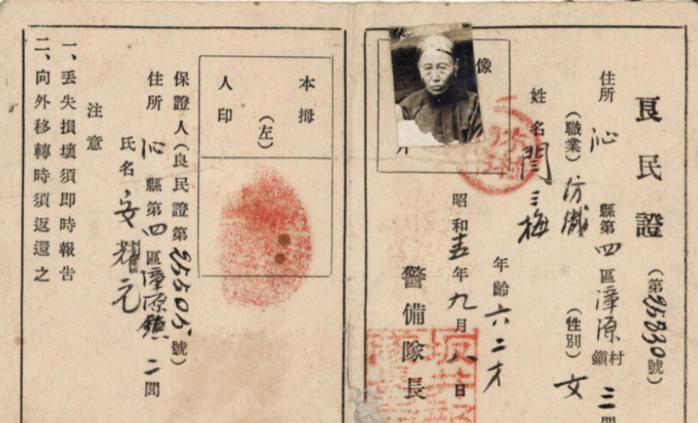 良民證
(第25830號)
住所 沁縣第四區漳源村鎮三閭
(職業)紡織
(性別)女
姓名 閆三梅
年齡六二才
像片
昭和 年九月八日
警備隊長
本人
拇印
(左)
保證人(良民證第25505號)
住所 沁縣第四區漳源鎮二閭
氏名 安耀元
注意
一、丟失損壞須即時報告
二、向外移轉時須返還之